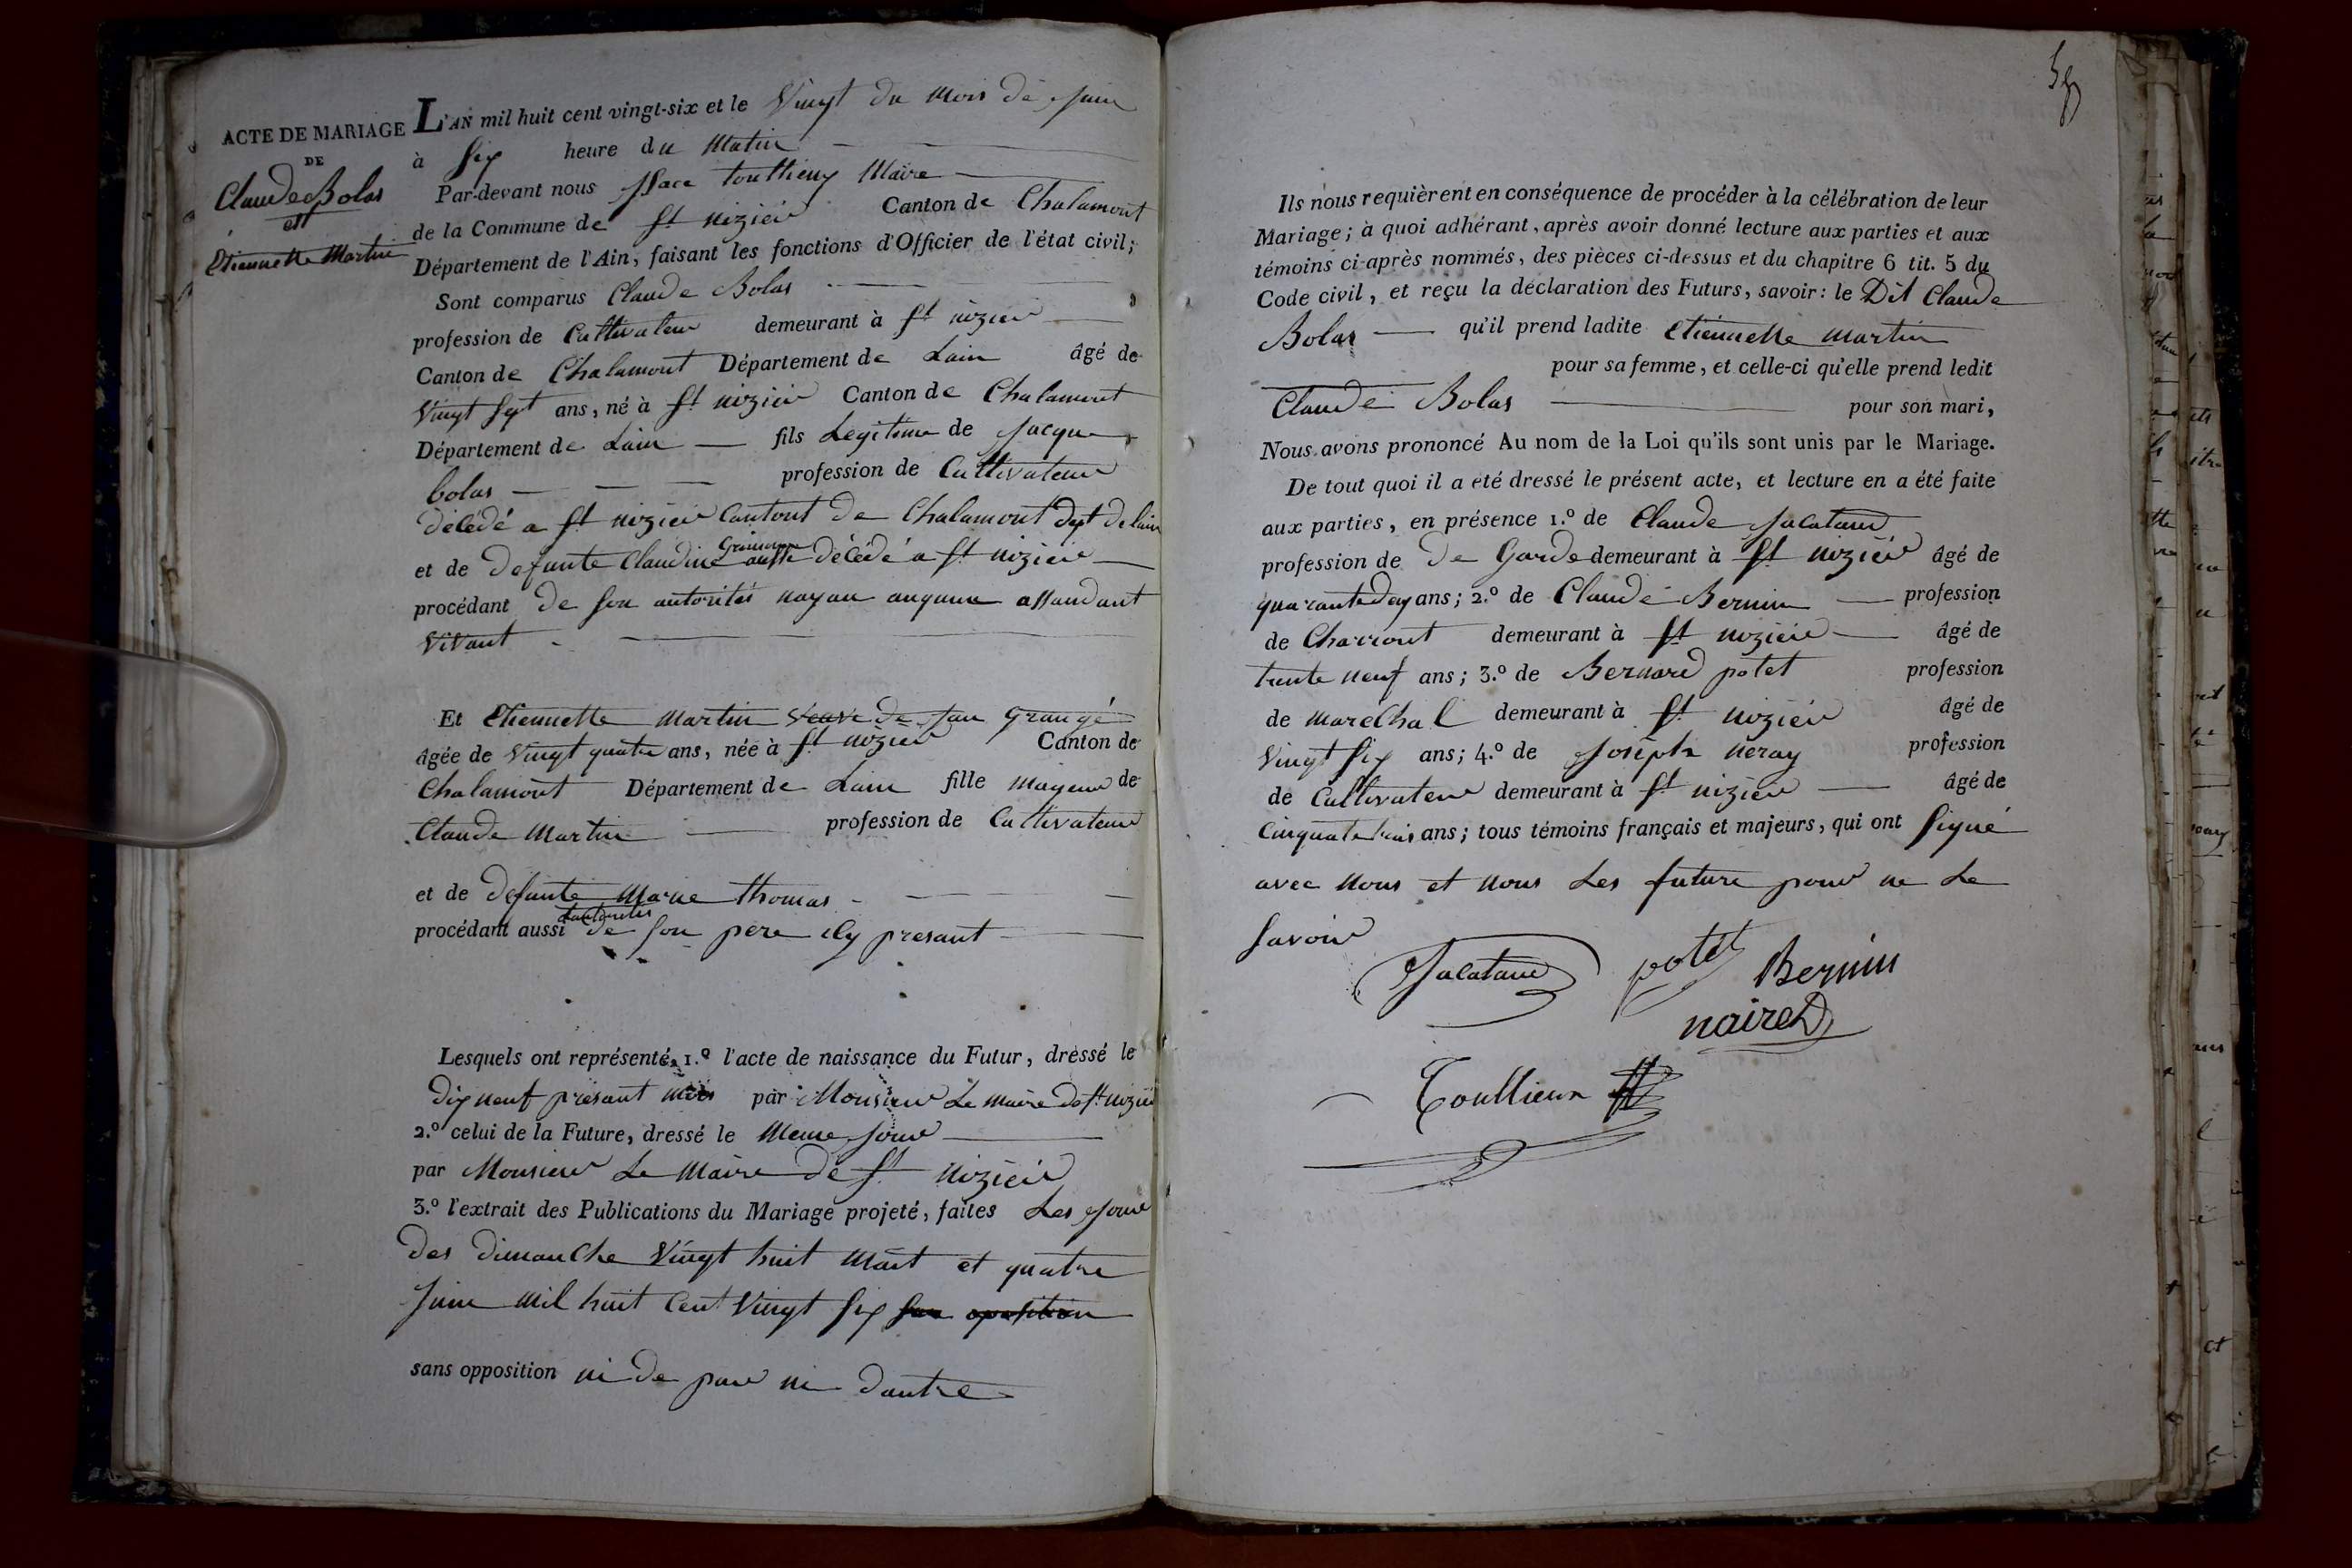 ACTE DE MARIAGE
DE
Claude Bolas
et
Etiennette Martin
L'AN mil huit cent vingt-six et le Vingt du mois de Juin
à Six heure du Matin
Par-devant nous Isaac Toullieux Maire
de la Commune de St nizièr Canton de Chalamont
Département de l'Ain, faisant les fonctions d'Officier de l'état civil;
Sont comparus Claude Bolas
profession de Cultivateur demeurant à St nizier
Canton de Chalamont Département de Lain âgé de
Vingt Sept ans, né à St nizier Canton de Chalamont
Département de Lain fils Legitime de Jacque
bolas profession de Cultivateur
décédé a St nizier Cantont de Chalamont dept de lain
et de defunte Claudine décédé a St nizier
procédant de son autorités nayan auqune assandant
Vivant
Et Etiennette Martin Veuve de Jan Grangé
âgée de Vingt quatre ans, née à St nizier Canton de
Chalamont Département de Lain fille mageur de
Claude Martin profession de Cultivateur
et de defunte Marie thomas
procédant aussi de Lautorités son pere icy presant
Lesquels ont représenté, 1.º l'acte de naissance du Futur, dressé le
dix neuf présant mois par Monsieur Le maire de St nizier
2.º celui de la Future, dressé le Meme Jour
par Monsieur Le Maire de St nizièr
3.º l'extrait des Publications du Mariage projeté, faites Les Jour
des dimanche Vingt huit Mait et quatre
Juin mil huit Cent Vingt Six san oposition
sans opposition ni de par ni dautre
Ils nous requièrent en conséquence de procéder à la célébration de leur
Mariage; à quoi adhérant, après avoir donné lecture aux parties et aux
témoins ci-après nommés, des pièces ci-dessus et du chapitre 6 tit. 5 du
Code civil, et reçu la déclaration des Futurs, savoir: le Dit Claude
Bolas qu'il prend ladite Etiennette martin
pour sa femme, et celle-ci qu'elle prend ledit
Claude Bolas pour son mari,
Nous avons prononcé Au nom de la Loi qu'ils sont unis par le Mariage.
De tout quoi il a été dressé le présent acte, et lecture en a été faite
aux parties, en présence 1.º de Claude Jacataud
profession de de Garde demeurant à St nizièr âgé de
quarante dex ans; 2.º de Claude Bernin profession
de Charront demeurant à St nizièr âgé de
trente neuf ans; 3.º de Bernard potet profession
de maréchal demeurant à St nizièr âgé de
Vingt Six ans; 4.º de Joseph neray profession
de Cultivateur demeurant à St nizier âgé de
Cinquante trois ans; tous témoins français et majeurs, qui ont Signé
avec nous et nous Les future pour ne Le
Savoir
Jacataud potet Bernin
naired
Toullieux